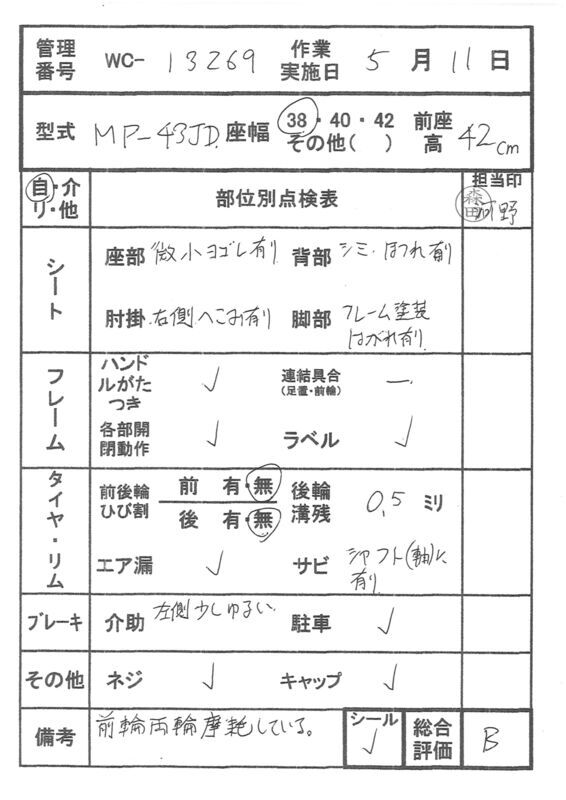 管理番号 WC- 13269 作業実施日 5 月 11 日
型式 MP-43JD. 座幅 38・40・42 その他( ) 前座高 42cm
自・介 リ・他 部位別点検表 担当印
森田 河野
シート 座部 微小ヨゴレ有り 背部 シミ・ほつれ有り
肘掛 右側へこみ有り 脚部 フレーム塗装はがれ有り
フレーム ハンドルがたつき ✓ 連結具合(足置・前輪) ー
各部開閉動作 ✓ ラベル ✓
タイヤ・リム 前後輪ひび割 前 有・無 後輪溝残 0.5 ミリ
後 有・無
エア漏 ✓ サビ シャフト(軸)に有り
ブレーキ 介助 左側少しゆるい. 駐車 ✓
その他 ネジ ✓ キャップ ✓
備考 前輪両輪摩耗している。 シール ✓ 総合評価 B